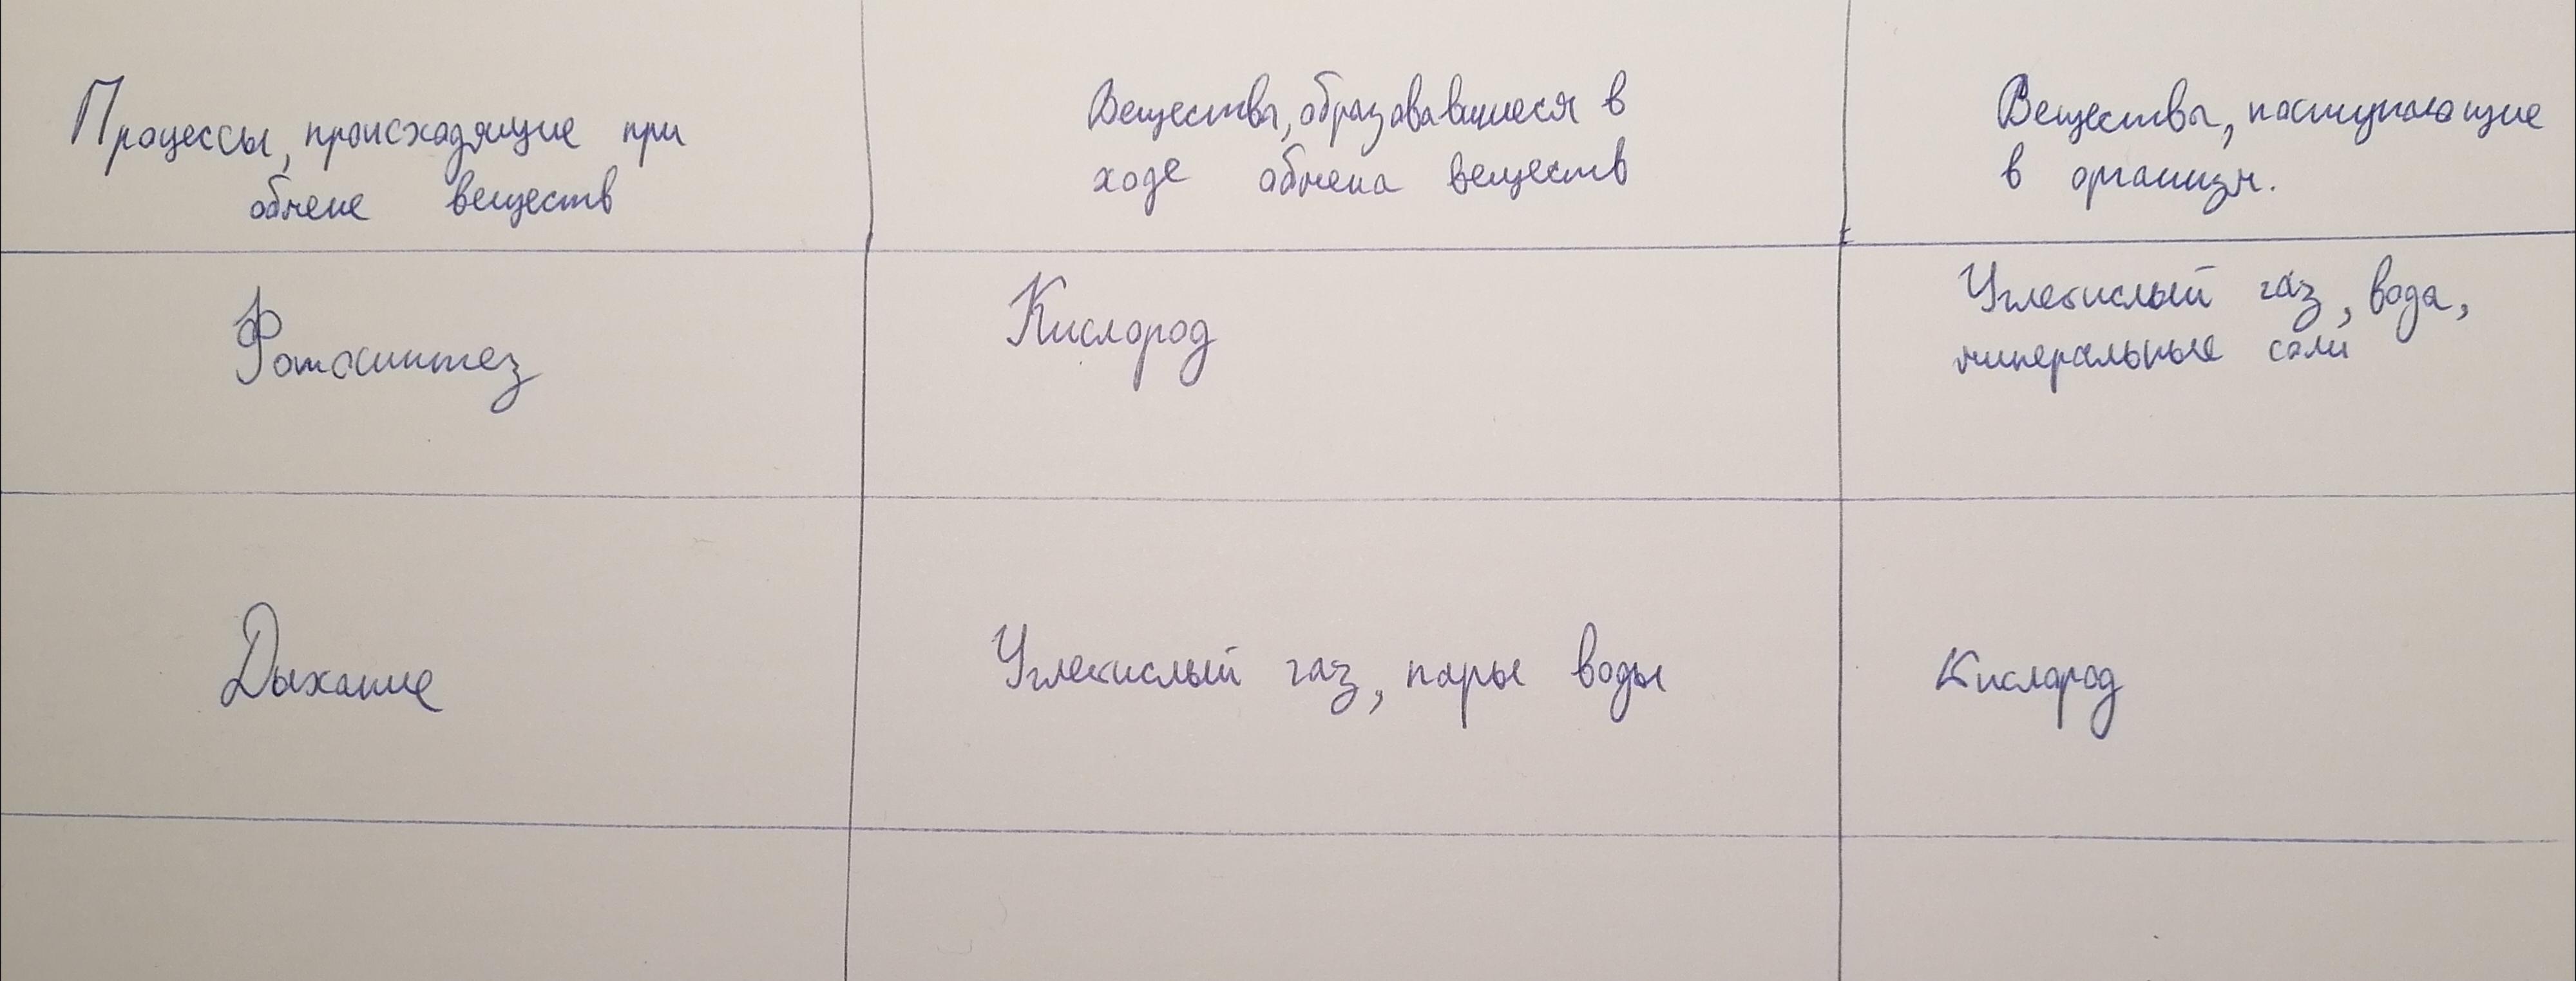 Процессы, происходящие при
обмене веществ
Вещества, образовавшиеся в
ходе обмена веществ
Вещества, поступающие
в организм.
Фотосинтез
Кислород
Углекислый газ, вода,
минеральные соли
Дыхание
Углекислый газ, пары воды
Кислород